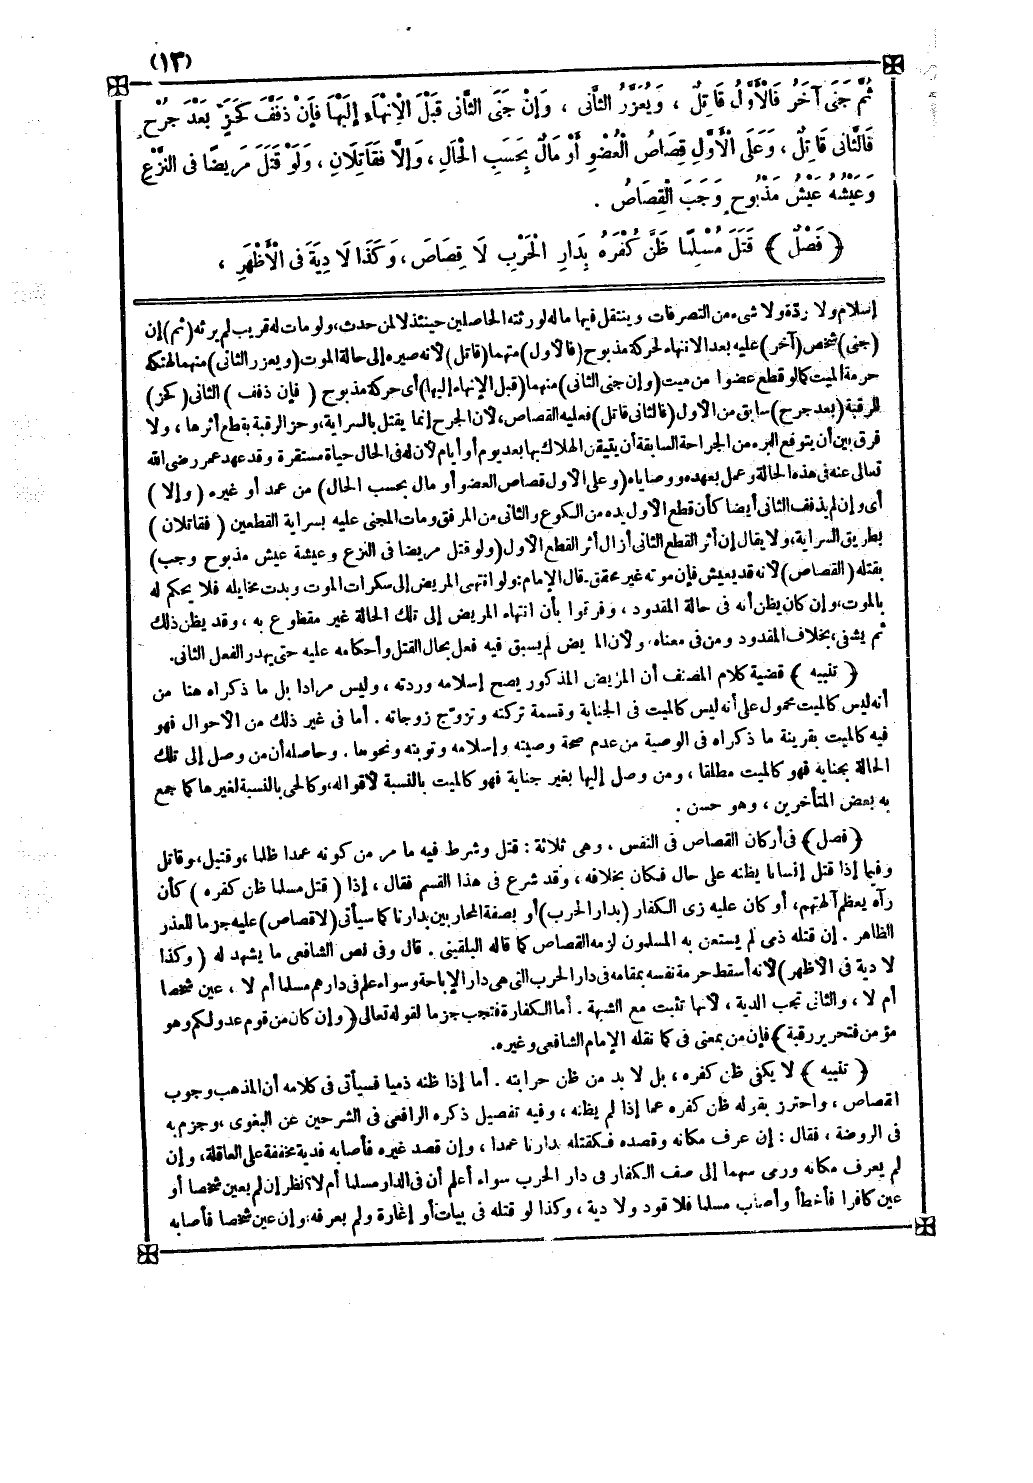 (١٣)
ثُمَّ جَنَى آخَرُ فَالْأَوَّلُ قَاتِلٌ ، وَيُعَزَّرُ الثَّانِى ، وَإِنْ جَنَى الثَّانِى قَبْلَ الْإِنْهَاءِ إِلَيْهَا فَإِنْ ذَفَّفَ كَحَزٍّ بَعْدَ جُرْحٍ
فَالثَّانِى قَاتِلٌ ، وَعَلَى الْأَوَّلِ قِصَاصُ الْعُضْوِ أَوْ مَالٌ بِحَسَبِ الْحَالِ ، وَإِلَّا فَقَاتِلَانِ ، وَلَوْ قَتَلَ مَرِيضًا فِى النَّزْعِ
وَعَيْشُهُ عَيْشُ مَذْبُوحٍ وَجَبَ الْقِصَاصُ .
﴿ فَصْلٌ ﴾ قَتَلَ مُسْلِمًا ظَنَّ كُفْرَهُ بِدَارِ الْحَرْبِ لَا قِصَاصَ ، وَكَذَا لَا دِيَةَ فِى الْأَظْهَرِ ،
إسلام ولا ردّة ولا شىء من التصرفات وينتقل فيها ماله لورثته الحاصلين حينئذ لا لمن حدث ، ولو مات له قريب لم يرثه (ثم) إن
(جنى) شخص (آخر) عليه بعد الانتهاء لحركة مذبوح (فالأول) منهما (قاتل) لأنه صيره إلى حالة الموت (ويعزر الثانى) منهما لهتكه
حرمة الميت كما لو قطع عضوا من ميت (وإن جنى الثانى) منهما (قبل الإنهاء إليها) أى حركة مذبوح ( فإن ذفف ) الثانى (كحز)
للرقبة (بعد جرح) سابق من الأول (فالثانى قاتل) فعليه القصاص ، لأن الجرح إنما يقتل بالسراية ، وحز الرقبة يقطع أثرها ، ولا
فرق بين أن يتوقع البرء من الجراحة السابقة أن يتيقن الهلاك بها بعد يوم أو أيام لأن له فى الحال حياة مستقرة وقد عهد عمر رضى الله
تعالى عنه فى هذه الحالة وعمل بعهده ووصاياه (وعلى الأول قصاص العضو أو مال بحسب الحال) من عمد أو غيره ( وإلا )
أى وإن لم يذفف الثانى أيضا كأن قطع الأول يده من الكوع والثانى من المرفق ومات المجنى عليه بسراية القطعين ( فقاتلان )
بطريق السراية ، ولا يقال إن أثر القطع الثانى أزال أثر القطع الأول (ولو قتل مريضا فى النزع وعيشة عيش مذبوح وجب)
بقتله ( القصاص ) لأنه قد يعيش فإن موته غير محقق . قال الإمام : ولو انتهى المريض إلى سكرات الموت وبدت مخايله فلا يحكم له
بالموت ، وإن كان يظن أنه فى حالة المقدود ، وفرقوا بأن انتهاء المريض إلى تلك الحالة غير مقطوع به ، وقد يظن ذلك
ثم يشفى ، بخلاف المقدود ومن فى معناه ولأن المريض لم يسبق فيه فعل يحال القتل وأحكامه عليه حتى يهدر الفعل الثانى .
﴿ تنبيه ﴾ قضية كلام المصنف أن المريض المذكور يصح إسلامه وردته ، وليس مرادا بل ما ذكراه هنا من
أنه ليس كالميت محمول على أنه ليس كالميت فى الجناية وقسمة تركته وتزوّج زوجاته . أما فى غير ذلك من الأحوال فهو
فيه كالميت بقرينة ما ذكراه فى الوصية من عدم صحة وصيته وإسلامه وتوبته ونحوها . وحاصله أن من وصل إلى تلك
الحالة بجناية فهو كالميت مطلقا ، ومن وصل إليها بغير جناية فهو كالميت بالنسبة لأقواله ، وكالحى بالنسبة لغيرها كما جمع
به بعض المتأخرين ، وهو حسن .
﴿ فصل ﴾ فى أركان القصاص فى النفس ، وهى ثلاثة : قتل وشرط فيه ما مر من كونه عمدا ظلما ، وقتيل ، وقاتل
وفيما إذا قتل إنسانا يظنه على حال فكان بخلافه ، وقد شرع فى هذا القسم فقال ، إذا ( قتل مسلما ظن كفره ) كأن
رآه يعظم آلهتهم ، أو كان عليه زى الكفار (بدار الحرب) أو بصفة المحاربين بدارنا كما سيأتى (لا قصاص) عليه جزما للعذر
الظاهر . إن قتله ذمى لم يستعن به المسلمون لزمه القصاص كما قاله البلقينى . قال وفى نص الشافعى ما يشهد له ( وكذا
لا دية فى الأظهر ) لأنه أسقط حرمة نفسه بمقامه فى دار الحرب التى هى دار الإباحة وسواء علم فى دارهم مسلما أم لا ، عين شخصا
أم لا ، والثانى تجب الدية ، لأنها تثبت مع الشبهة . أما الكفارة فتجب جزما لقوله تعالى ﴿ وإن كان من قوم عدو لكم وهو
مؤمن فتحرير رقبة ﴾ فإن من بمعنى فى كما نقله الإمام الشافعى وغيره .
﴿ تنبيه ﴾ لا يكفى ظن كفره ، بل لا بد من ظن حرابته . أما إذا ظنه ذميا فسيأتى فى كلامه أن المذهب وجوب
القصاص ، واحترز بقوله ظن كفره عما إذا لم يظنه ، وفيه تفصيل ذكره الرافعى فى الشرحين عن البغوى ، وجزم به
فى الروضة ، فقال : إن عرف مكانه وقصده فكقتله بدارنا عمدا ، وإن قصد غيره فأصابه فدية مخففة على العاقلة ، وإن
لم يعرف مكانه ورمى سهما إلى صف الكفار فى دار الحرب سواء أعلم أن فى الدار مسلما أم لا ؟ نظر إن لم يعين شخصا أو
عين كافرا فأخطأ وأصاب مسلما فلا قود ولا دية ، وكذا لو قتله فى بيات أو إغارة ولم يعرفه ، وإن عين شخصا فأصابه